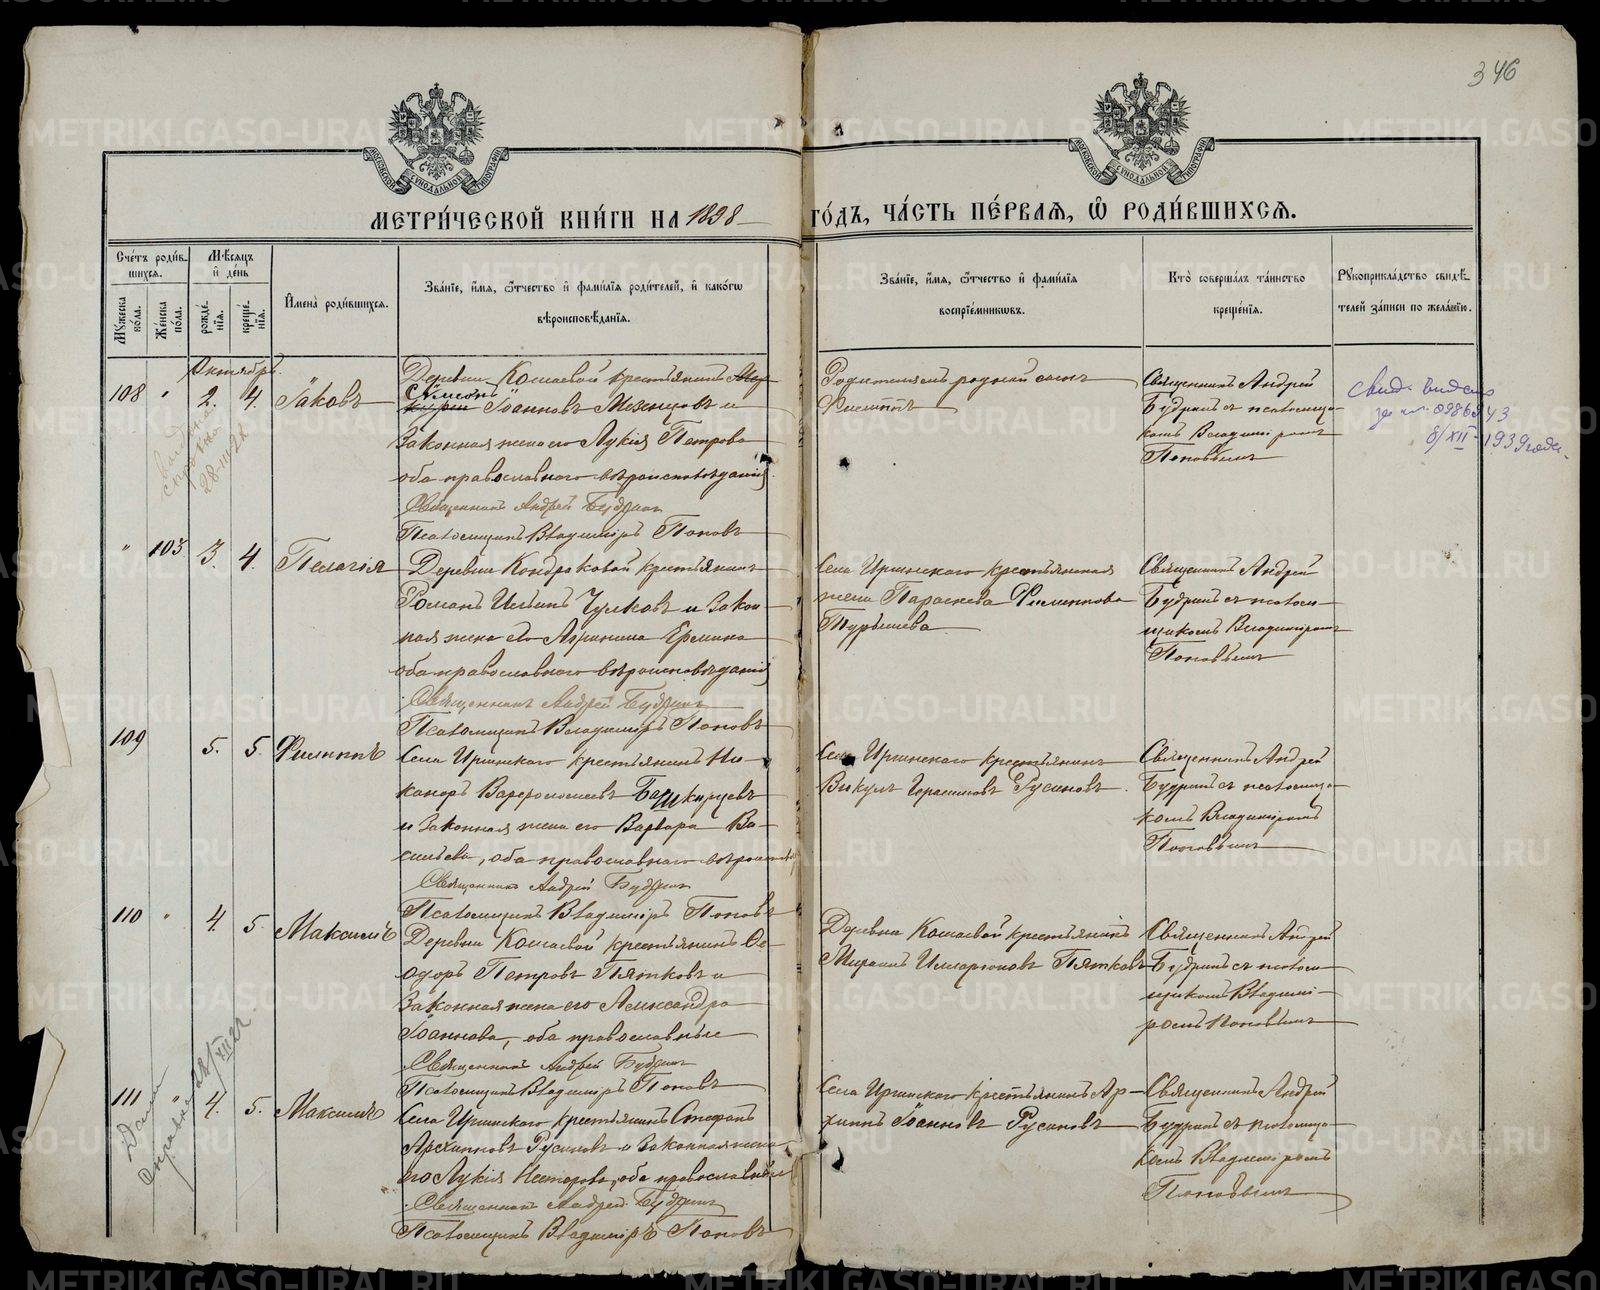 346
МОСКОВСКОЙ СѴНОДАЛЬНОЙ ТИПОГРАФІИ
МОСКОВСКОЙ СѴНОДАЛЬНОЙ ТИПОГРАФІИ
МЕТРИ́ЧЕСКОЙ КНИ́ГИ НА 1898 ГО́ДЪ, ЧА́СТЬ ПЕ́РВАЯ, Ѡ҆ РОДИ́ВШИХСЯ.
Сче́тъ роди́в-
шихся.
Му́жеска по́ла.
Же́нска по́ла.
Мѣ́сяцъ
и҆ де́нь
рожде́нїя.
креще́нїя.
И҆мена̀ роди́вшихся.
Зва́нїе, и҆́мя, ѻ҆́тчество и҆ фами́лїя роди́телей, и҆ како́гѡ
вѣроисповѣ́данїя.
Зва́нїе, и҆́мя, ѻ҆́тчество и҆ фами́лїя
воспрїе́мниковъ.
Кто̀ соверша́лъ та́инство
креще́нїя.
Рꙋкоприкла́дство свидѣ́-
телей за́писи по жела́нїю.
Октябрь
108 " 2. 4. Іаковъ
Деревни Кошаевой крестьянинъ
Сѵмеонъ Іоанновъ Мезенцовъ и
законная жена его Лукія Петрова
оба православнаго вѣроисповѣданія
Священникъ Андрей Будринъ
Псаломщикъ Владиміръ Поповъ
Родителемъ родной сынъ
Филиппъ
Священникъ Андрей
Будринъ съ псаломщи-
комъ Владиміромъ
Поповымъ
8/XII-1939 года
28-III-22
" 103 3. 4. Пелагія
Деревни Кондраковой крестьянинъ
Романъ Ильинъ Чулковъ и закон-
ная жена его Агрипина Ермина
оба православнаго вѣроисповѣданія
Священникъ Андрей Будринъ
Псаломщикъ Владиміръ Поповъ
Села Иргинскаго крестьянская
жена Параскева Филиппова
Турышева
Священникъ Андрей
Будринъ съ псалом-
щикомъ Владиміромъ
Поповымъ
109 5. 5. Филиппъ
Села Иргинскаго крестьянинъ Ни-
каноръ Варфоломеевъ Башкирцевъ
и законная жена его Варвара Ва-
сильева, оба православнаго вѣроиспов
Священникъ Андрей Будринъ
Псаломщикъ Владиміръ Поповъ
Села Иргинскаго крестьянинъ
Викулъ Герасимовъ Русиновъ
Священникъ Андрей
Будринъ съ псаломщи-
комъ Владиміромъ
Поповымъ
110 " 4. 5. Максимъ
Деревни Кошаевой крестьянинъ Ѳе-
одоръ Петровъ Пятковъ и
законная жена его Александра
Іоаннова, оба православные
Священникъ Андрей Будринъ
Псаломщикъ Владиміръ Поповъ
Деревни Кошаевой крестьянинъ
Миронъ Илларіоновъ Пятковъ
Священникъ Андрей
Будринъ съ псалом-
щикомъ Владимі-
ромъ Поповымъ
111 " 4. 5. Максимъ
Села Иргинскаго крестьянинъ Стефанъ
Архипповъ Русиновъ и законная жена
его Лукія Нестерова, оба православные
Священникъ Андрей Будринъ
Псаломщикъ Владиміръ Поповъ
Села Иргинскаго крестьянинъ Ар-
хиппъ Іоанновъ Русиновъ
Священникъ Андрей
Будринъ съ псаломщи-
комъ Владиміромъ
Поповымъ
METRIKI.GASO-URAL.RU